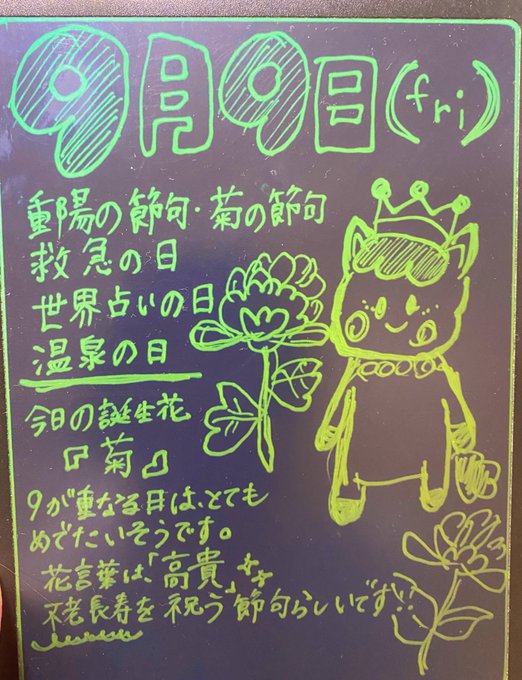 9月9日(fri)
重陽の節句・菊の節句
救急の日
世界占いの日
温泉の日
今日の誕生花
『菊』
9が重なる日は、とても
めでたいそうです。
花言葉は、「高貴」
不老長寿を祝う節句らしいです!!